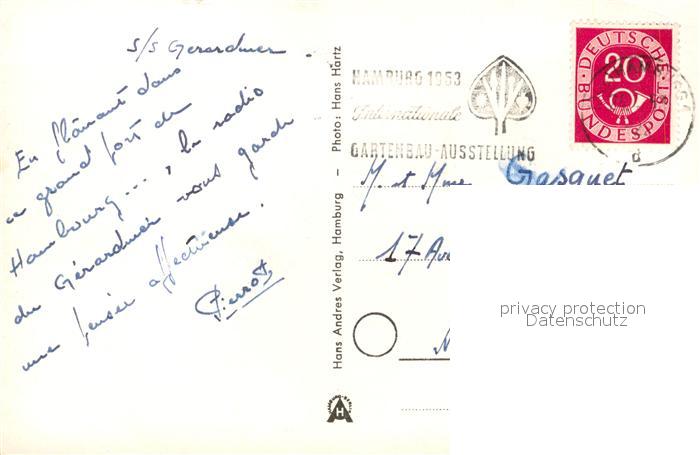 s/s Gerardmer
En flânant dans
ce grand port de
Hambourg..., la radio
du Gérardmer vous garde
une pensée affectueuse.
Pierrot
Hans Andres Verlag, Hamburg - Photo: Hans Hartz
HAMBURG 1953
Internationale
GARTENBAU-AUSSTELLUNG
DEUTSCHE
20
BUNDESPOST
M. et Mme Gasquet
17 Av
privacy protection
Datenschutz